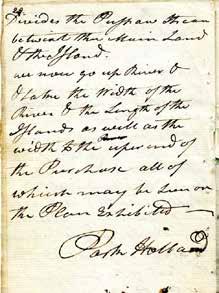 24
Divides the Pussaw Stream
betwixt the Main Land
& the Island.
we now go up River &
& take the Width of the
River & the Length of the
Islands as well as the
width to the uper end of
the Purchase all of
which may be seen on
the Plan Exhibited —
Park Holland